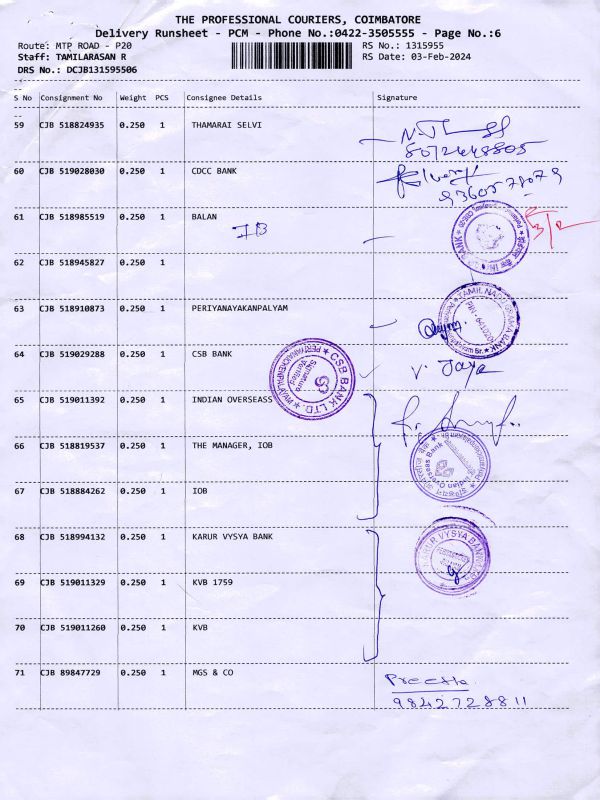 THE PROFESSIONAL COURIERS, COIMBATORE
Delivery Runsheet - PCM - Phone No.:0422-3505555 - Page No.:6
Route: MTP ROAD - P20 RS No.: 1315955
Staff: TAMILARASAN R RS Date: 03-Feb-2024
DRS No.: DCJB131595506
S No Consignment No Weight PCS Consignee Details Signature
59 CJB 518824935 0.250 1 THAMARAI SELVI
8072448805
60 CJB 519028030 0.250 1 CDCC BANK
9360578079
61 CJB 518985519 0.250 1 BALAN
IB
62 CJB 518945827 0.250 1
63 CJB 518910873 0.250 1 PERIYANAYAKANPALYAM
64 CJB 519029288 0.250 1 CSB BANK
CSB BANK LTD.
Signature Verified
V. Jaya
65 CJB 519011392 0.250 1 INDIAN OVERSEASS
66 CJB 518819537 0.250 1 THE MANAGER, IOB
Indian Overseas Bank
67 CJB 518884262 0.250 1 IOB
68 CJB 518994132 0.250 1 KARUR VYSYA BANK
KARUR VYSYA BANK
69 CJB 519011329 0.250 1 KVB 1759
70 CJB 519011260 0.250 1 KVB
71 CJB 89847729 0.250 1 MGS & CO
Preetha
9842728811